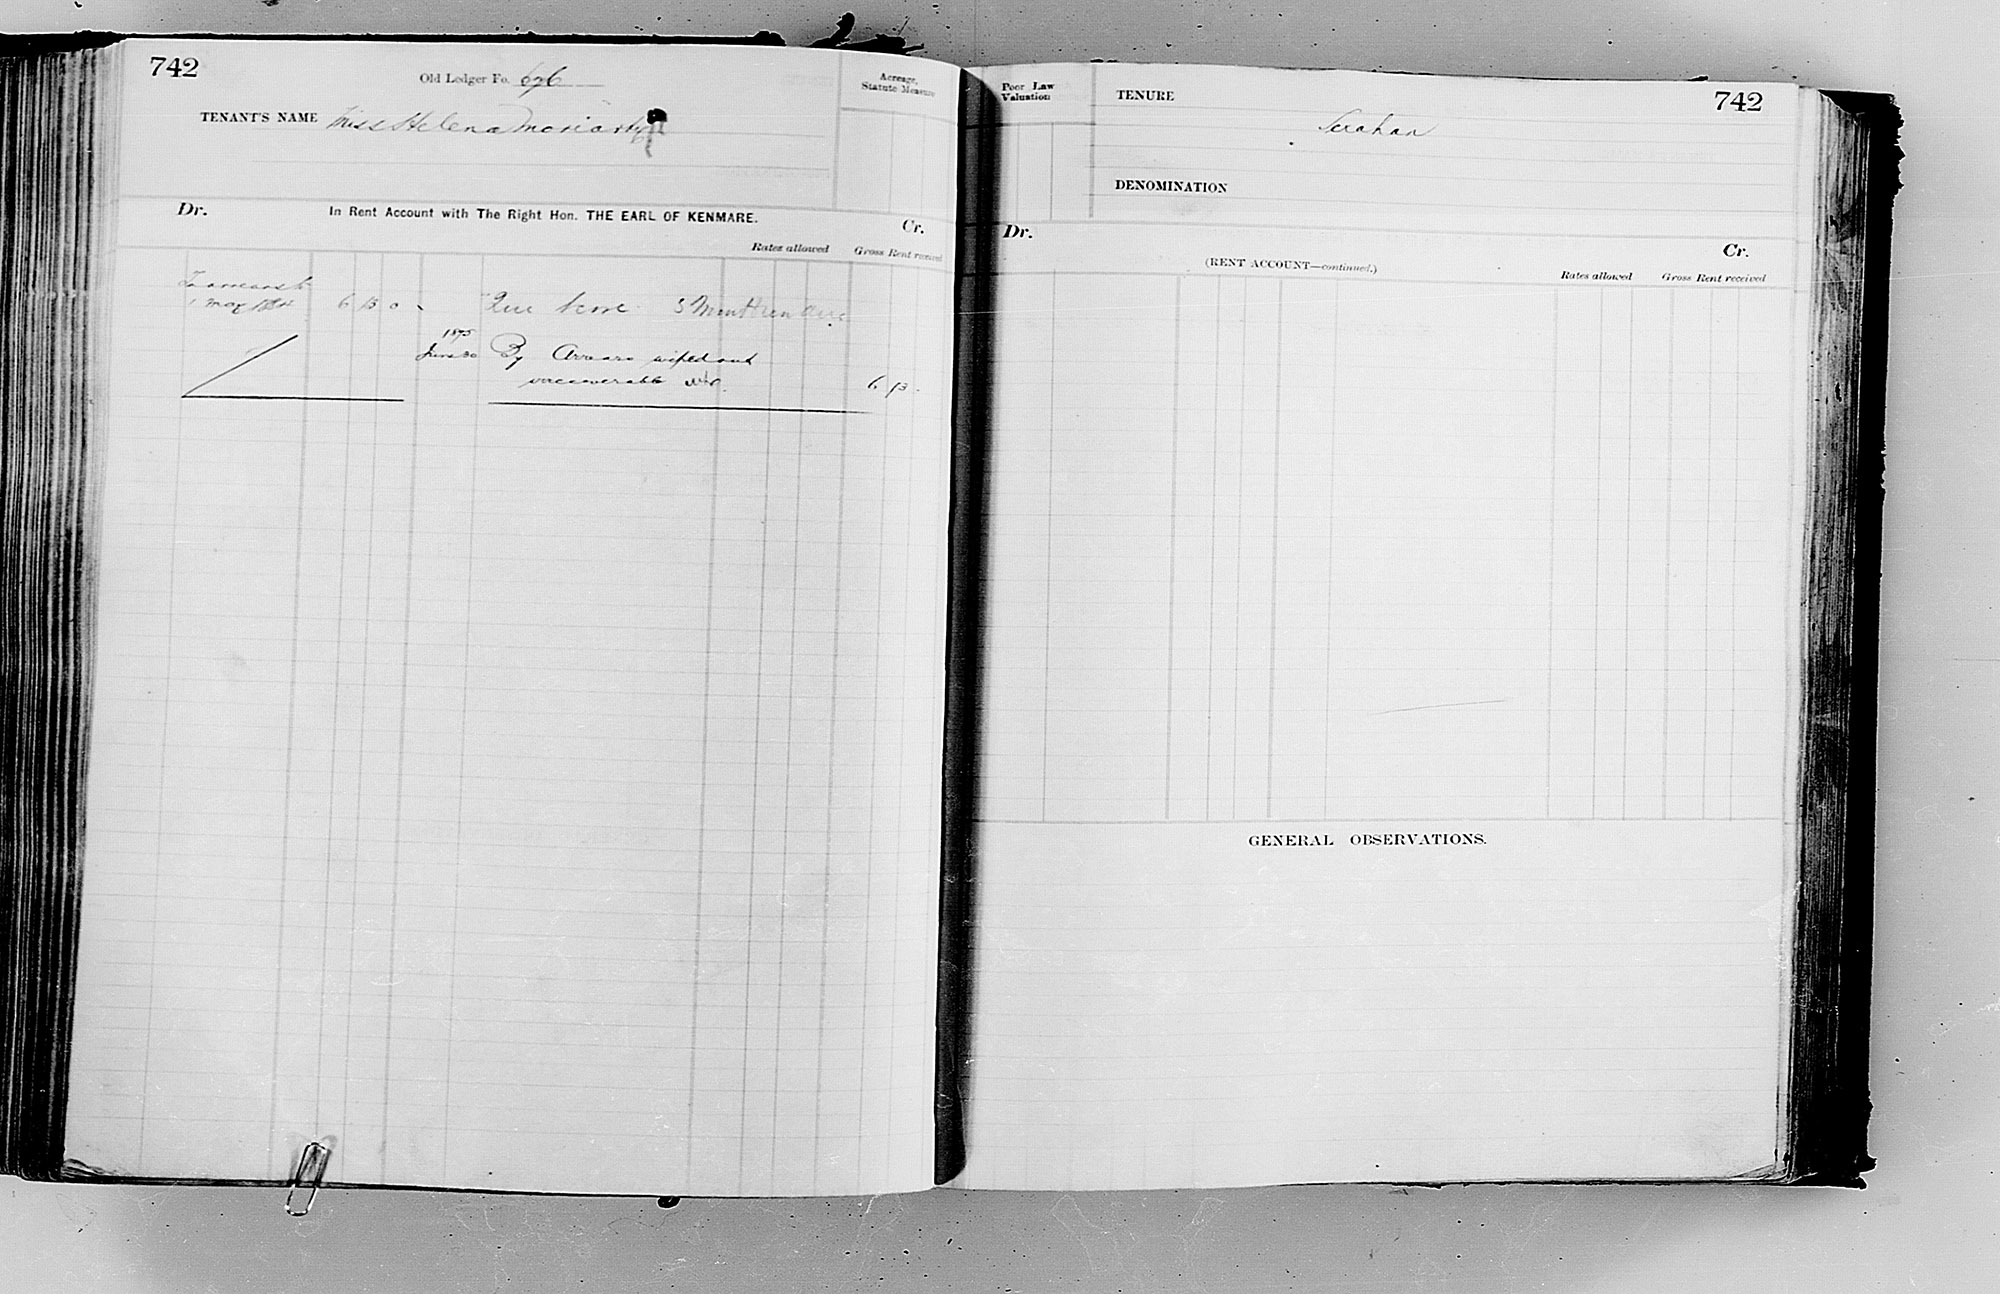 742
Old Ledger Fo. 696
Acreage, Statute Measure
TENANT'S NAME Miss Helena Moriarty
Dr. In Rent Account with The Right Hon. THE EARL OF KENMARE. Cr.
Rates allowed Gross Rent received
To arrears to
1 May 6 13 0
1895
June 30 By Arrears wiped out
irrecoverable 6 13 -
Poor Law Valuation
TENURE
742
DENOMINATION
Dr. Cr.
(RENT ACCOUNT—continued.)
Rates allowed Gross Rent received
GENERAL OBSERVATIONS.